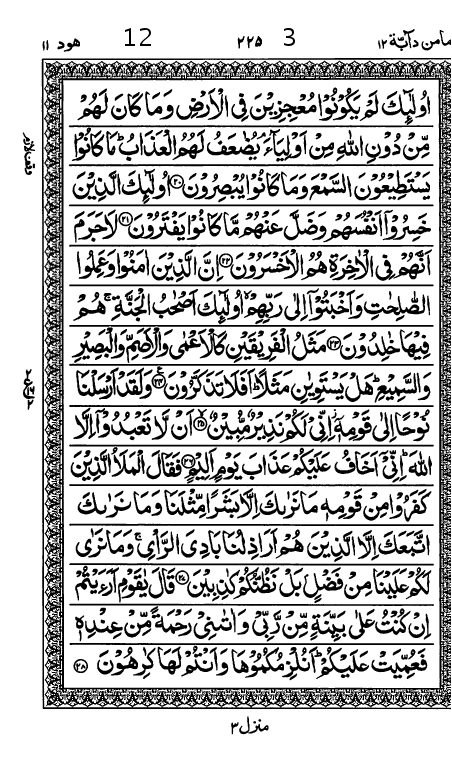 وما من دآبّة ١٢ 3 ٢٢٥ 12 هود ١١
اُولٰٓئِكَ لَمْ يَكُوْنُوْا مُعْجِزِيْنَ فِي الْاَرْضِ وَمَا كَانَ لَهُمْ
مِّنْ دُوْنِ اللّٰهِ مِنْ اَوْلِيَآءَ ۘ يُضٰعَفُ لَهُمُ الْعَذَابُ ؕ مَا كَانُوْا
يَسْتَطِيْعُوْنَ السَّمْعَ وَمَا كَانُوْا يُبْصِرُوْنَ ﴿٢٠﴾ اُولٰٓئِكَ الَّذِيْنَ
خَسِرُوْۤا اَنْفُسَهُمْ وَضَلَّ عَنْهُمْ مَّا كَانُوْا يَفْتَرُوْنَ ﴿٢١﴾ لَا جَرَمَ
اَنَّهُمْ فِي الْاٰخِرَةِ هُمُ الْاَخْسَرُوْنَ ﴿٢٢﴾ اِنَّ الَّذِيْنَ اٰمَنُوْا وَعَمِلُوا
الصّٰلِحٰتِ وَاَخْبَتُوْۤا اِلٰى رَبِّهِمْ ۙ اُولٰٓئِكَ اَصْحٰبُ الْجَنَّةِ ۚ هُمْ
فِيْهَا خٰلِدُوْنَ ﴿٢٣﴾ مَثَلُ الْفَرِيْقَيْنِ كَالْاَعْمٰى وَالْاَصَمِّ وَالْبَصِيْرِ
وَالسَّمِيْعِ ؕ هَلْ يَسْتَوِيٰنِ مَثَلًا ؕ اَفَلَا تَذَكَّرُوْنَ ﴿٢٤﴾ وَلَقَدْ اَرْسَلْنَا
نُوْحًا اِلٰى قَوْمِهٖۤ ۫ اِنِّيْ لَكُمْ نَذِيْرٌ مُّبِيْنٌ ﴿٢٥﴾ اَنْ لَّا تَعْبُدُوْۤا اِلَّا
اللّٰهَ ؕ اِنِّيْۤ اَخَافُ عَلَيْكُمْ عَذَابَ يَوْمٍ اَلِيْمٍ ﴿٢٦﴾ فَقَالَ الْمَلَاُ الَّذِيْنَ
كَفَرُوْا مِنْ قَوْمِهٖ مَا نَرٰىكَ اِلَّا بَشَرًا مِّثْلَنَا وَمَا نَرٰىكَ
اتَّبَعَكَ اِلَّا الَّذِيْنَ هُمْ اَرَاذِلُنَا بَادِيَ الرَّاْيِ ۚ وَمَا نَرٰى
لَكُمْ عَلَيْنَا مِنْ فَضْلٍۭ بَلْ نَظُنُّكُمْ كٰذِبِيْنَ ﴿٢٧﴾ قَالَ يٰقَوْمِ اَرَءَيْتُمْ
اِنْ كُنْتُ عَلٰى بَيِّنَةٍ مِّنْ رَّبِّيْ وَاٰتٰىنِيْ رَحْمَةً مِّنْ عِنْدِهٖ
فَعُمِّيَتْ عَلَيْكُمْ ؕ اَنُلْزِمُكُمُوْهَا وَاَنْتُمْ لَهَا كٰرِهُوْنَ ﴿٢٨﴾
منزل ٣